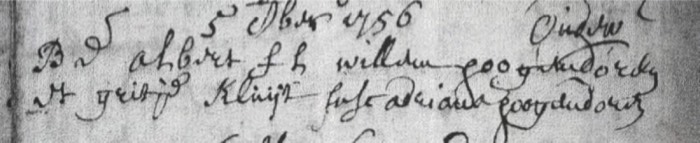 5 5 Xber 1756 Ouden
B d albert f l willem poogendorp
et gritje Kluijt susc adriana poogendorp